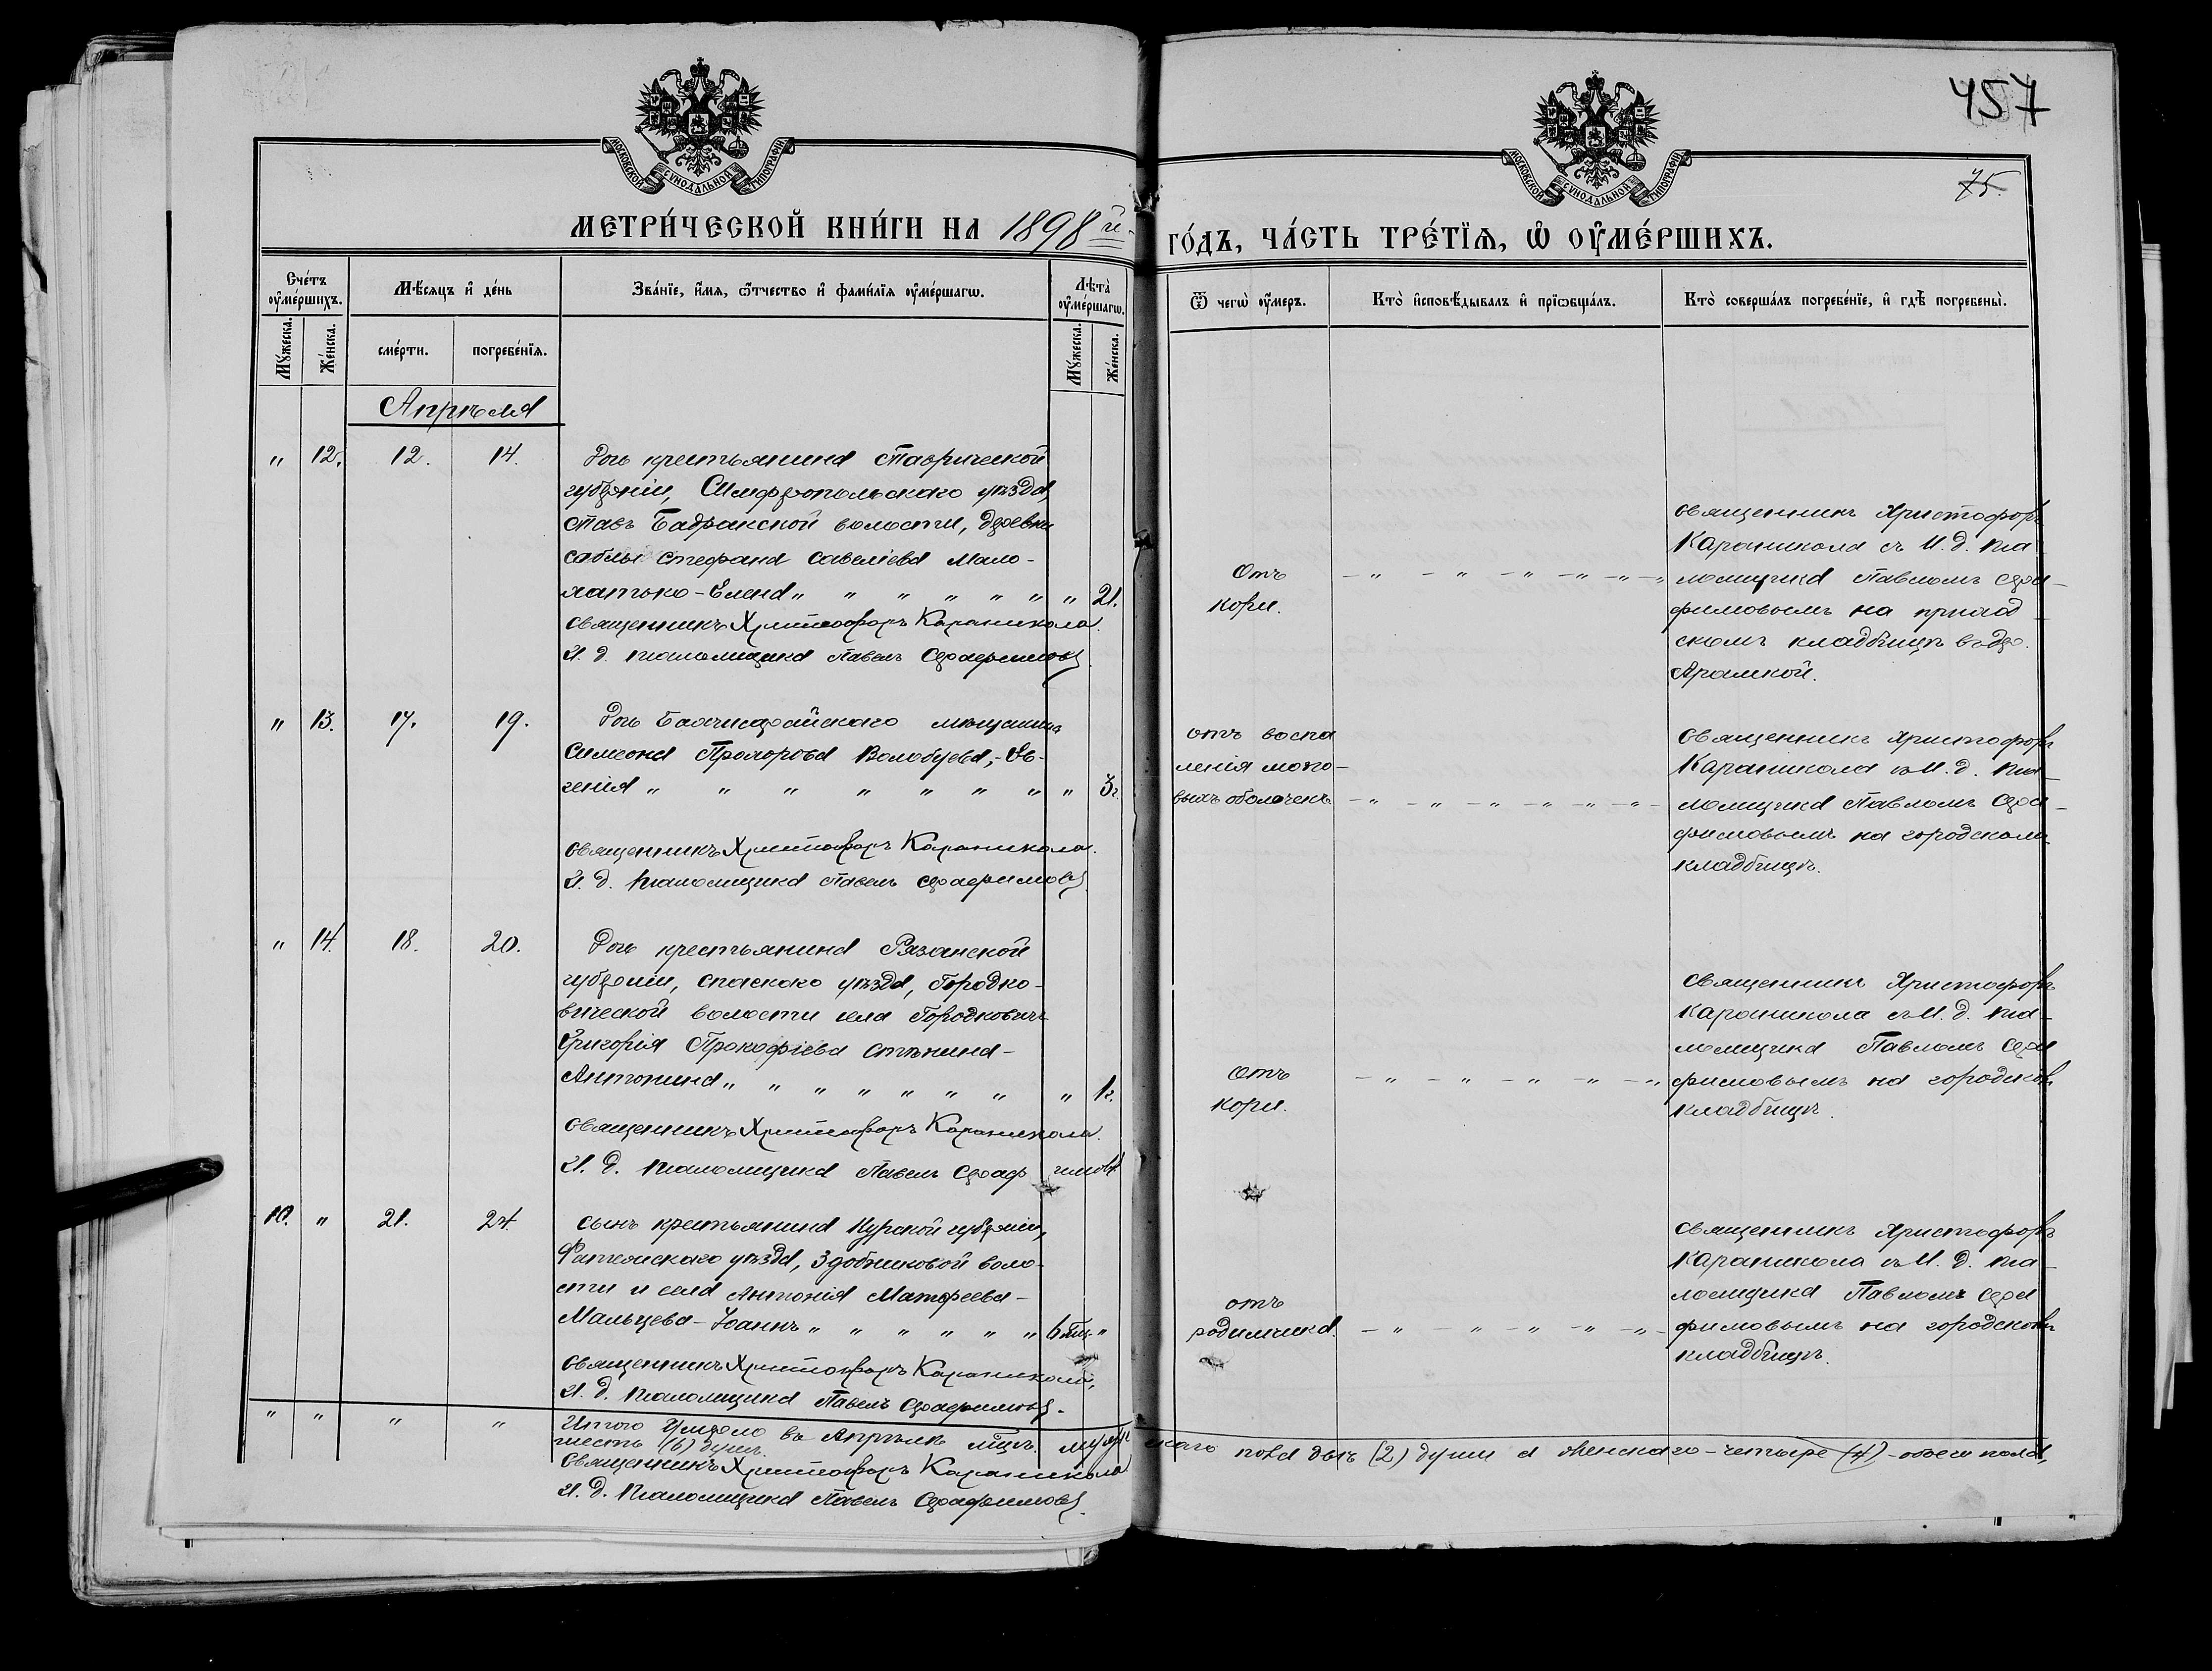 457
75.
МОСКОВСКОЙ СѴНОДАЛЬНОЙ ТИПОГРАФІИ
МОСКОВСКОЙ СѴНОДАЛЬНОЙ ТИПОГРАФІИ
МЕТРИ́ЧЕСКОЙ КНИ́ГИ НА 1898й
ГО́ДЪ, ЧА́СТЬ ТРЕ́ТЇѦ, Ѽ ОУ҆МЕ́РШИХЪ.
Сче́тъ оу҆ме́ршихъ.
Мꙋ́жеска.
Же́нска.
Мѣ́сяцъ и҆ де́нь
сме́рти.
погребе́нїѧ.
Зва́нїе, и҆́мѧ, ѻ҆́тчество и҆ фами́лїѧ оу҆ме́ршагѡ.
Лѣ̀та оу҆ме́ршагѡ.
Мꙋ́жеска.
Же́нска.
Ѿ чегѡ̀ оу҆́меръ.
Кто̀ и҆сповѣ́дывалъ и҆ прїѡбща́лъ.
Кто̀ соверша́лъ погребе́нїе, и҆ гдѣ̀ погребены̀.
Апрѣля
" 12. 12. 14.
Дочь крестьянина Таврической
губерніи, Симферопольскаго уѣзда,
Тавъ Бадракской волости, деревни
Саблы Стефана Савеліева Мало-
хатько - Елена " " " " " " " 2г.
Священникъ Христофоръ Караникола.
И. д. псаломщика Павелъ Серафимовъ
Отъ
кори.
Священникъ Христофоръ
Караникола съ И. д. пса
ломщика Павломъ Сера-
фимовымъ на приход-
скомъ кладбищѣ въ дер.
" 13. 17. 19.
Дочь Бахчисарайскаго мѣщанина
Симеона Прохорова Волобуева, - Ев-
генія " " " " " " " " 3г.
Священникъ Христофоръ Караникола.
И. д. псаломщика Павелъ Серафимовъ
отъ воспа
ленія мозго-
выхъ оболочекъ
Священникъ Христофоръ
Караникола съ И. д. пса-
ломщика Павломъ Сера-
фимовымъ на городскомъ
кладбищѣ.
" 14. 18. 20.
Дочь крестьянина Рязанской
губерніи, Спаскаго уѣзда, Городко-
вической волости села Городковичъ
Григорія Прокофіева Стѣнина -
Антонина " " " " " " " " 1г.
Священникъ Христофоръ Караникола.
И. д. псаломщика Павелъ Серафимовъ
Отъ
кори.
Священникъ Христофоръ
Караникола съ И. д. пса-
ломщика Павломъ Сера
фимовымъ на городскомъ
кладбищѣ.
10. " 21. 24.
Сынъ крестьянина Курской губерніи,
Фатежскаго уѣзда, воло-
сти и села Антонія Матфеева -
Мальцева - Іоаннъ " " " " " " 6 мц. "
Священникъ Христофоръ Караникола,
И. д. псаломщика Павелъ Серафимовъ.
отъ
родимчика.
Священникъ Христофоръ
Караникола съ И. д. пса-
ломщика Павломъ Сера
фимовымъ на городскомъ
кладбищѣ.
" " " "
Итого умерло въ Апрѣлѣ мцѣ. мужескаго пола двѣ (2) души а женскаго - четыре (4) - обоего пола,
шесть (6) душъ.
Священникъ Христофоръ Караникола
И. д. псаломщика Павелъ Серафимовъ.